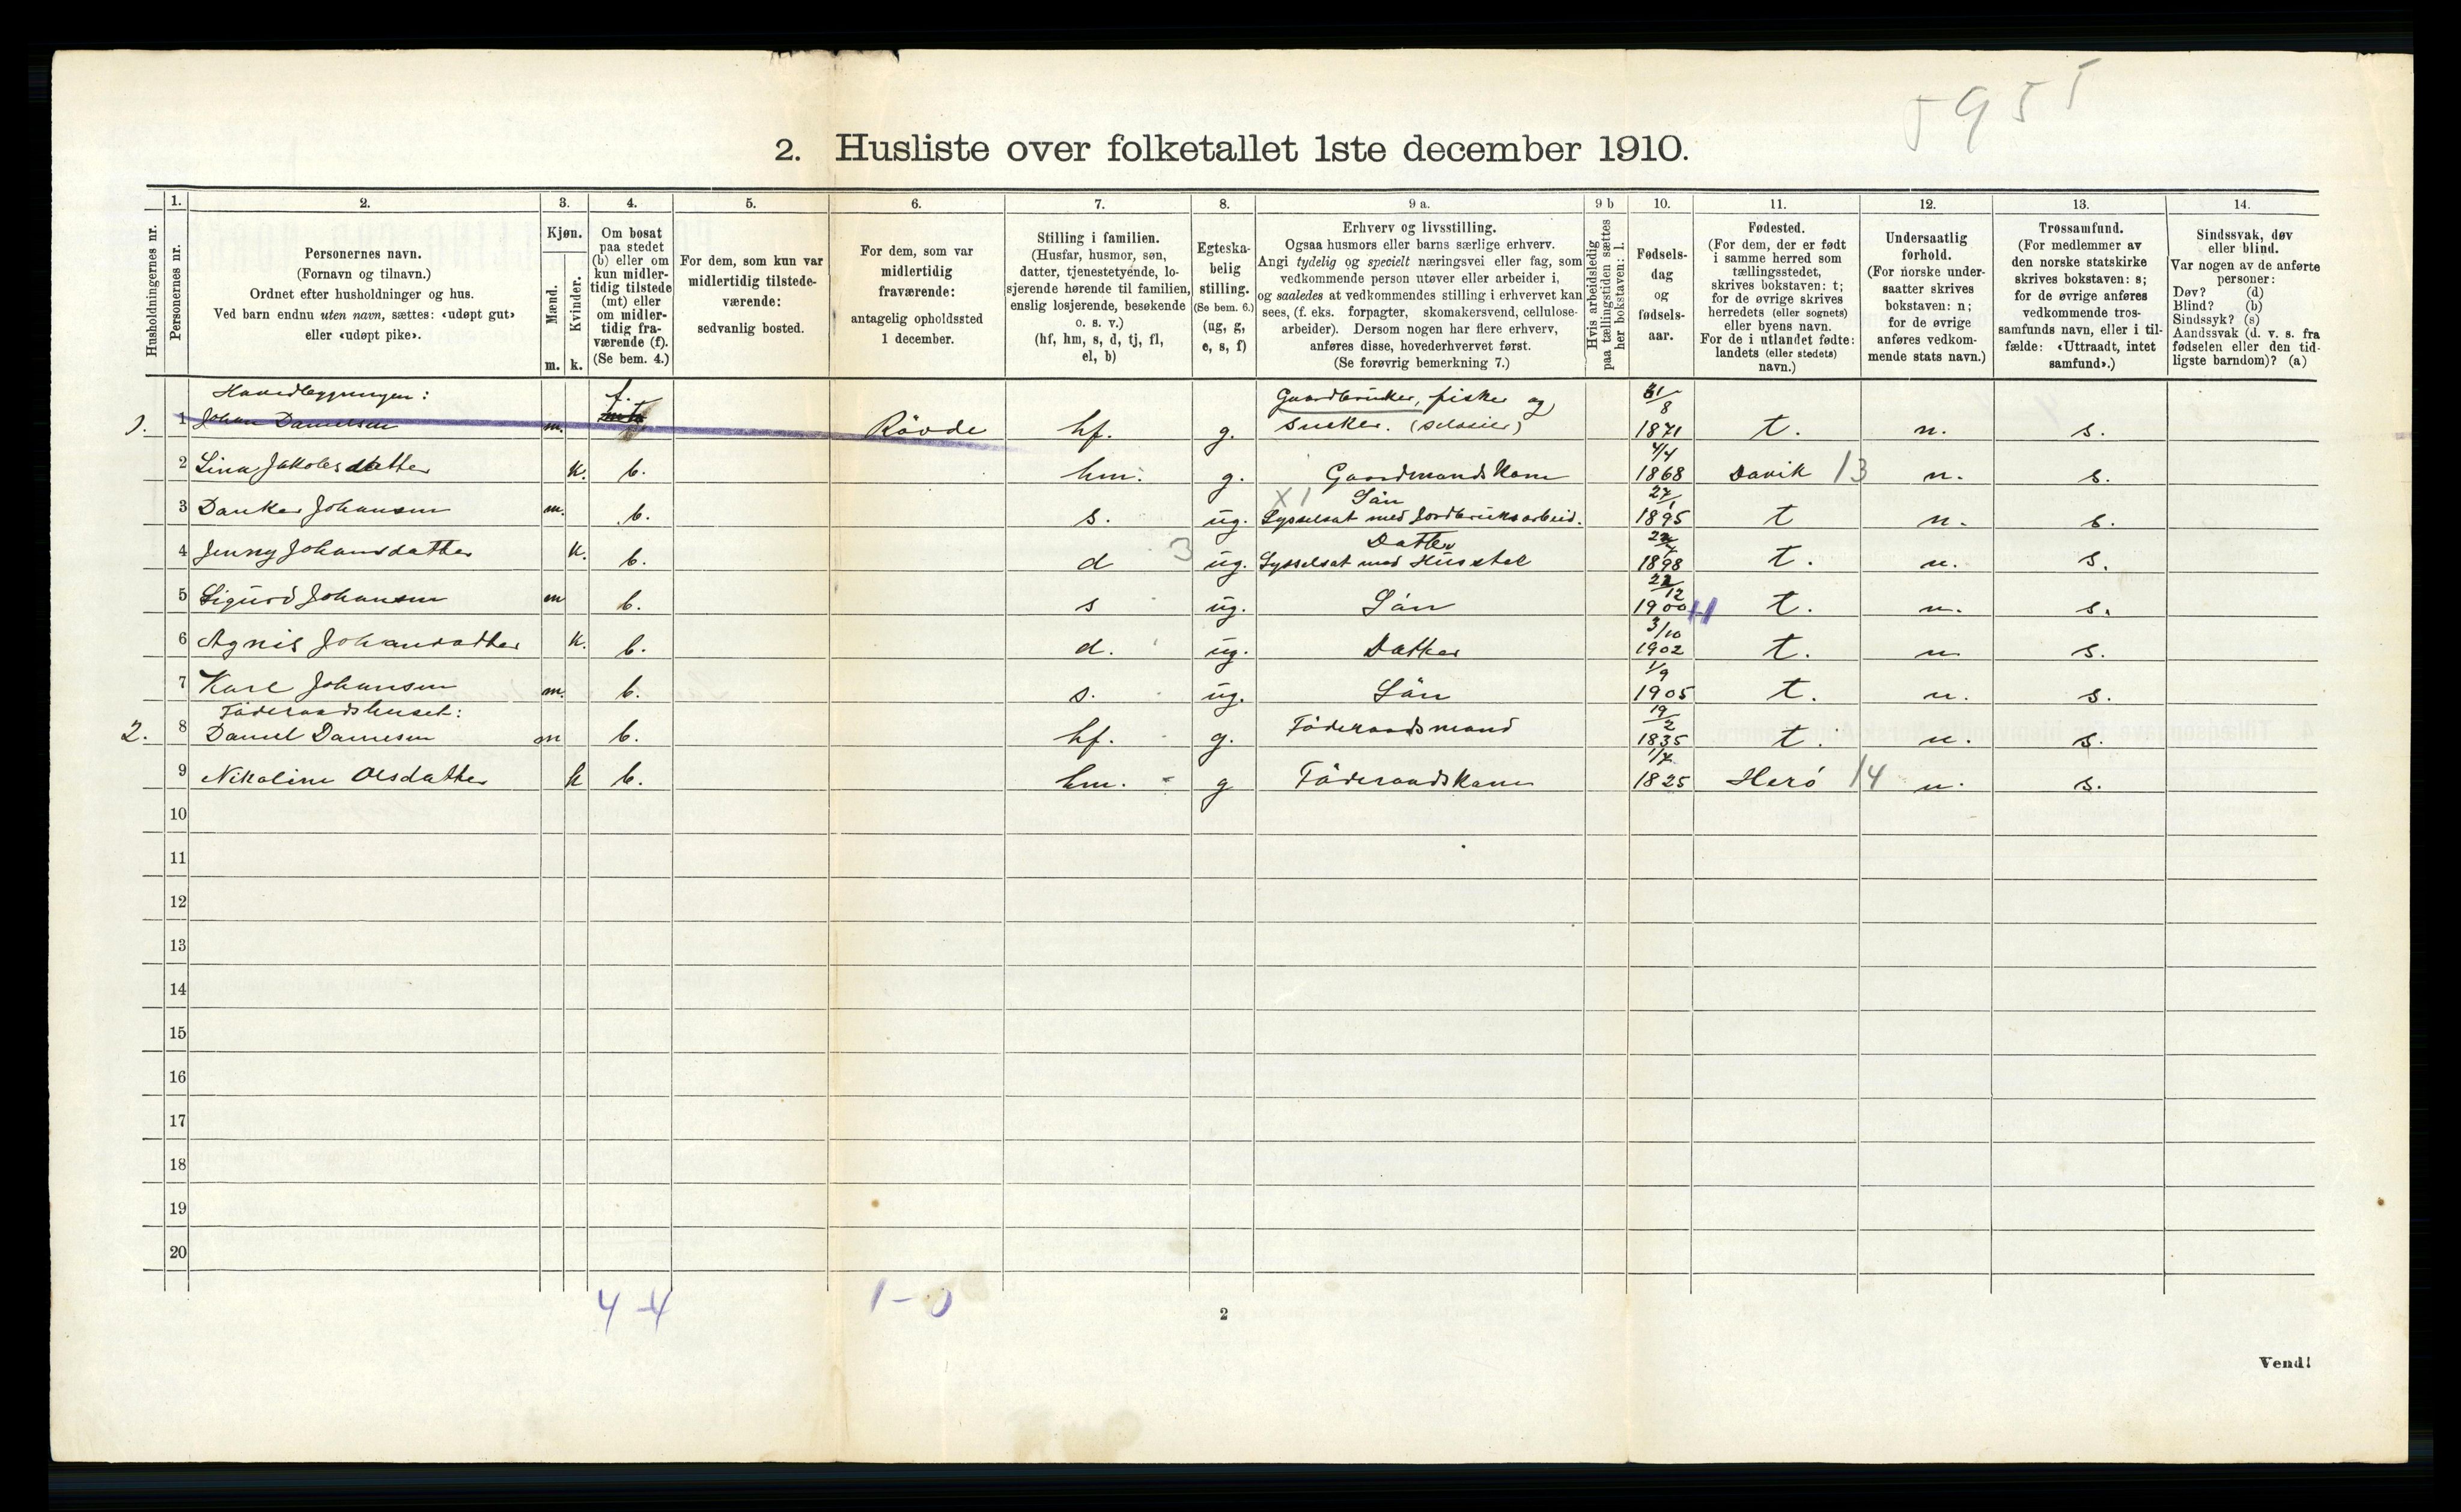 5955
2. Husliste over folketallet 1ste december 1910.
Husholdningernes nr.
1. Personernes nr.
2. Personernes navn. (Fornavn og tilnavn.) Ordnet efter husholdninger og hus. Ved barn endnu uten navn, sættes: «udøpt gut» eller «udøpt pike».
3. Kjøn. Mænd. m. Kvinder. k.
4. Om bosat paa stedet (b) eller om kun midlertidig tilstede (mt) eller om midlertidig fraværende (f). (Se bem. 4.)
5. For dem, som kun var midlertidig tilstedeværende: sedvanlig bosted.
6. For dem, som var midlertidig fraværende: antagelig opholdssted 1 december.
7. Stilling i familien. (Husfar, husmor, søn, datter, tjenestetyende, losjerende hørende til familien, enslig losjerende, besøkende o. s. v.) (hf, hm, s, d, tj, fl, el, b)
8. Egteskabelig stilling. (Se bem. 6.) (ug, g, e, s, f)
9 a. Erhverv og livsstilling. Ogsaa husmors eller barns særlige erhverv. Angi tydelig og specielt næringsvei eller fag, som vedkommende person utøver eller arbeider i, og saaledes at vedkommendes stilling i erhvervet kan sees, (f. eks. forpagter, skomakersvend, cellulosearbeider). Dersom nogen har flere erhverv, anføres disse, hovederhvervet først. (Se forøvrig bemerkning 7.)
9 b Hvis arbeidsledig paa tællingstiden sættes her bokstaven: l.
10. Fødselsdag og fødselsaar.
11. Fødested. (For dem, der er født i samme herred som tællingsstedet, skrives bokstaven: t; for de øvrige skrives herredets (eller sognets) eller byens navn. For de i utlandet fødte: landets (eller stedets) navn.)
12. Undersaatlig forhold. (For norske undersaatter skrives bokstaven: n; for de øvrige anføres vedkommende stats navn.)
13. Trossamfund. (For medlemmer av den norske statskirke skrives bokstaven: s; for de øvrige anføres vedkommende trossamfunds navn, eller i tilfælde: «Uttraadt, intet samfund».)
14. Sindssvak, døv eller blind. Var nogen av de anførte personer: Døv? (d) Blind? (b) Sindssyk? (s) Aandssvak (d. v. s. fra fødselen eller den tidligste barndom)? (a)
Hovedbygningen:
1. 1 Johan Danielsen m. f. Rövde hf. g. Gaardbruker, fisker og 31/8 1871 t. n. s.
2 Lina Jakobsdatter k. b. hm. g. Gaardmandskone 4/4 1868 Davik 13 n. s.
3 Danker Johansen m. b. s. ug. X1 Sön Sysselsat med Jordbruksarbeid. 27/1 1895 t n. s.
4 Jenny Johansdatter k. b. d 3 ug. Datter Sysselsat med Husstel 1898 t. n. s.
5 Sigurd Johansen m b. s ug. Sön 22/12 1900 t. n. s.
6 Agnis Johansdatter k. b. d. ug. Datter 3/10 1902 t. n s.
7 Karl Johansen m. b. s. ug. Sön 1/9 1905 t. n. s.
Föderaadshuset:
2. 8 Daniel Danielsen m b. hf. g. Föderaadsmand 19/2 1835 t. n. s.
9 Nikoline Olsdatter k b. hm. g Föderaadskone 1/7 1825 Herö 14 n. s.
10
11
12
13
14
15
16
17
18
19
20
4-4 1-0
2
Vend!